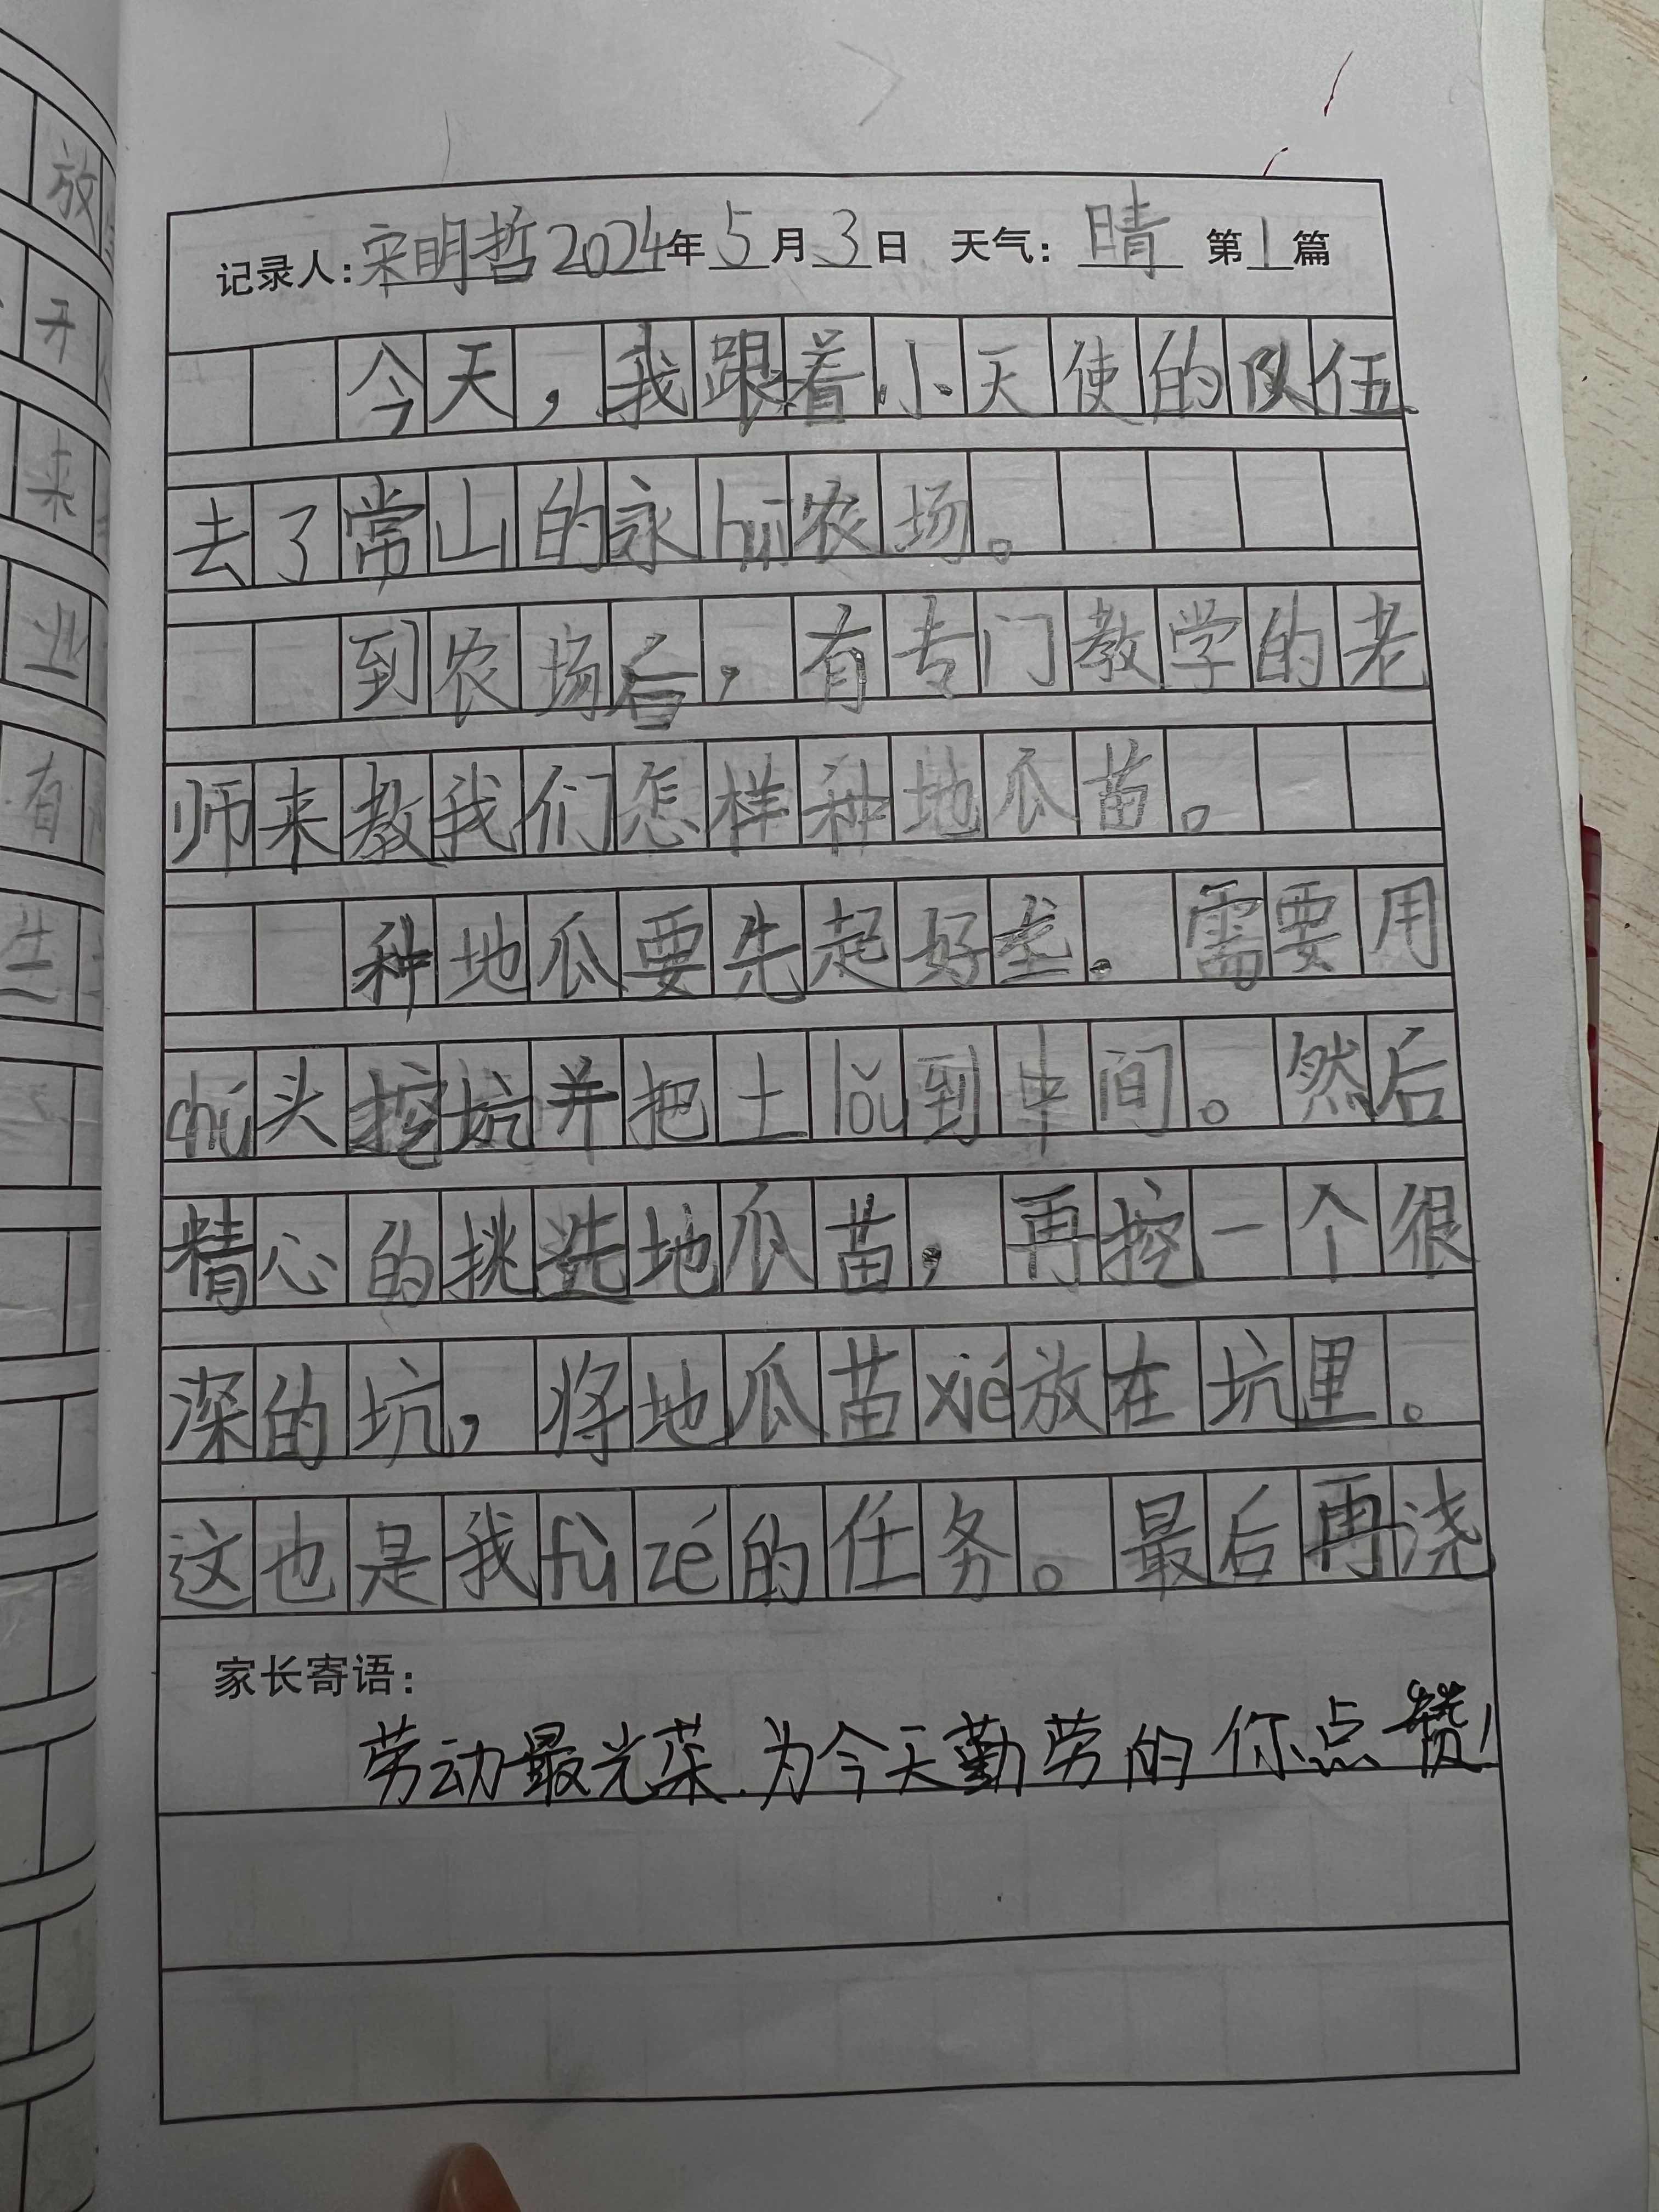 记录人:宋明哲2024年5月3日 天气:晴 第1篇
今天,我跟着小天使的队伍
去了常山的永huī农场。
到农场后,有专门教学的老
师来教我们怎样种地瓜苗。
种地瓜要先起好垄。需要用
chú头挖坑并把土lǒu到中间。然后
精心的挑选地瓜苗,再挖一个很
深的坑,将地瓜苗xié放在坑里。
这也是我fù zé的任务。最后再浇
家长寄语:
劳动最光荣.为今天勤劳的你点赞!
放
开
来
业
有
生